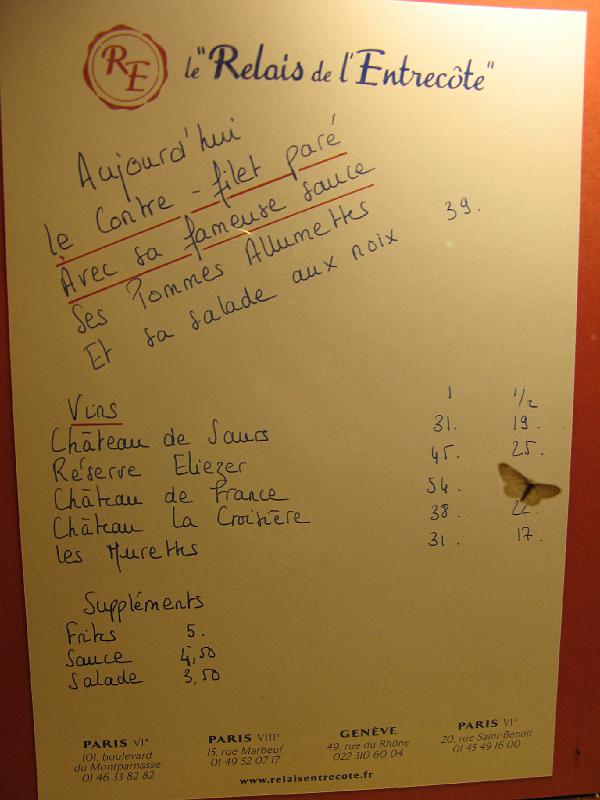 RE le "Relais de l'Entrecôte"
Aujourd'hui
le Contre-filet paré
Avec sa fameuse sauce
Ses Pommes Allumettes 39.
Et sa salade aux noix
Vins 1 1/2
Château de Saurs 31. 19.
Réserve Eliezer 45. 25.
Château de France 54.
Château La Croisière 38. 22.
les Murettes 31. 17.
Suppléments
Frites 5.
Sauce 4,50
Salade 3,50
PARIS VIe
101, boulevard
du Montparnasse
01 46 33 82 82
PARIS VIIIe
15, rue Marbeuf
01 49 52 07 17
GENÈVE
49, rue du Rhône
022 310 60 04
PARIS VIe
20, rue Saint-Benoit
01 45 49 16 00
www.relaisentrecote.fr